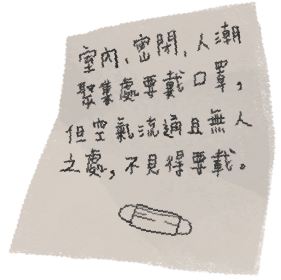 室內、密閉、人潮
聚集處要戴口罩，
但空氣流通且無人
之處，不見得要戴。